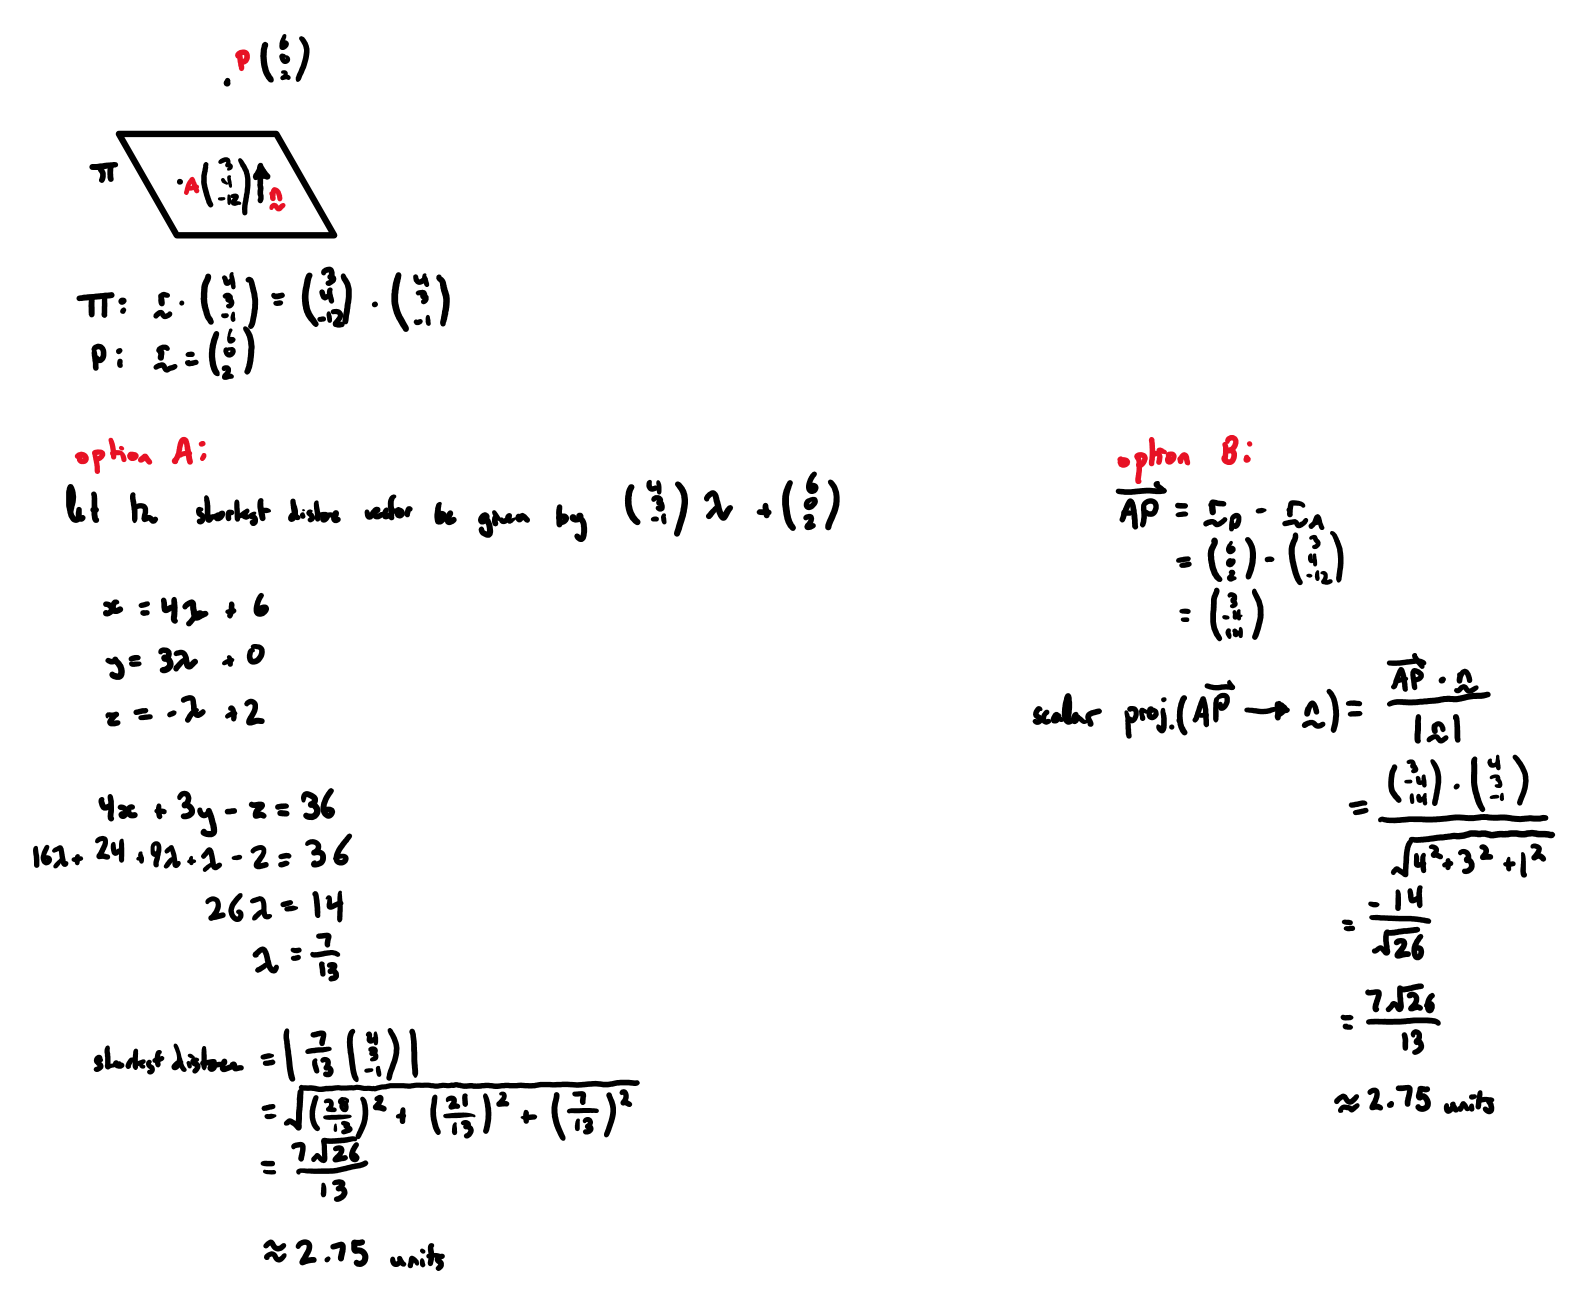 P (6 0 2)
π
A (3 4 -12) n
π: r · (4 3 -1) = (3 4 -12) · (4 3 -1)
P: r = (6 0 2)
option A:
let the shortest distance vector be given by (4 3 -1) λ + (6 0 2)
x = 4λ + 6
y = 3λ + 0
z = -λ + 2
4x + 3y - z = 36
16λ + 24 + 9λ + λ - 2 = 36
26λ = 14
λ = 7/13
shortest distance = | 7/13 (4 3 -1) |
= √((28/13)² + (21/13)² + (7/13)²)
= 7√26/13
≈ 2.75 units
option B:
AP = r_P - r_A
= (6 0 2) - (3 4 -12)
= (3 -4 14)
scalar proj.(AP → n) = AP · n / |n|
= (3 -4 14) · (4 3 -1) / √(4² + 3² + 1²)
= -14/√26
= 7√26/13
≈ 2.75 units